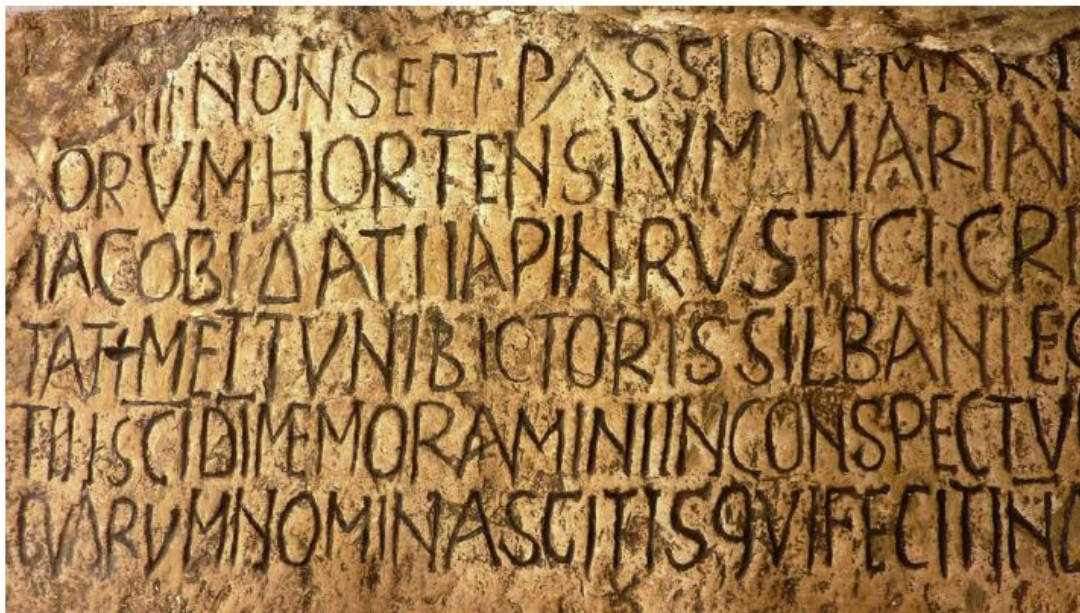 III NON SEPT· PASSIONE MART
ORVM HORTENSIVM MARIAN
IACOBI DATI IAPIN RVSTICI CRI
TAT+ METTVNI BICTORIS SILBANI EG
TII SCI DI MEMORAMINI IN CONSPECTV
QVARVM NOMINA SCITIS QVI FECIT IN